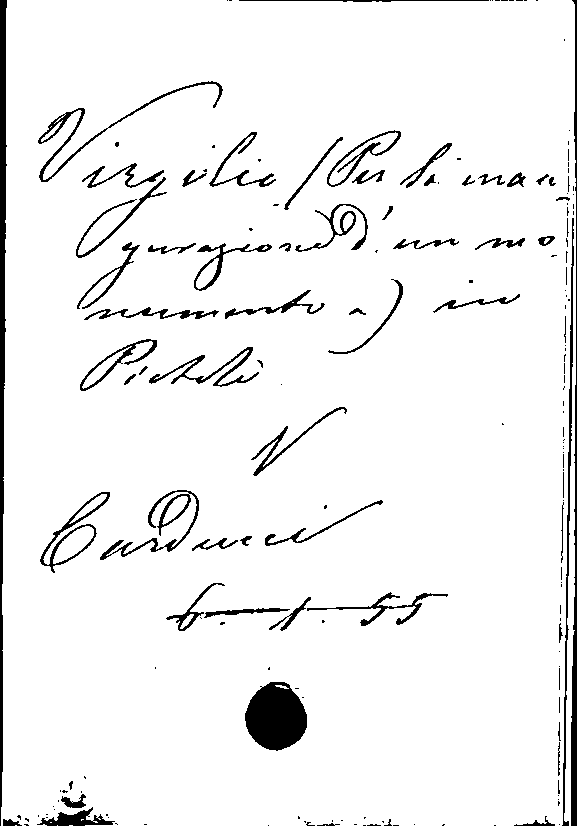 Virgilio (Per la inau-
gurazione d'un mo-
numento a) in
Pietole
V
Carducci
6. 1. 55